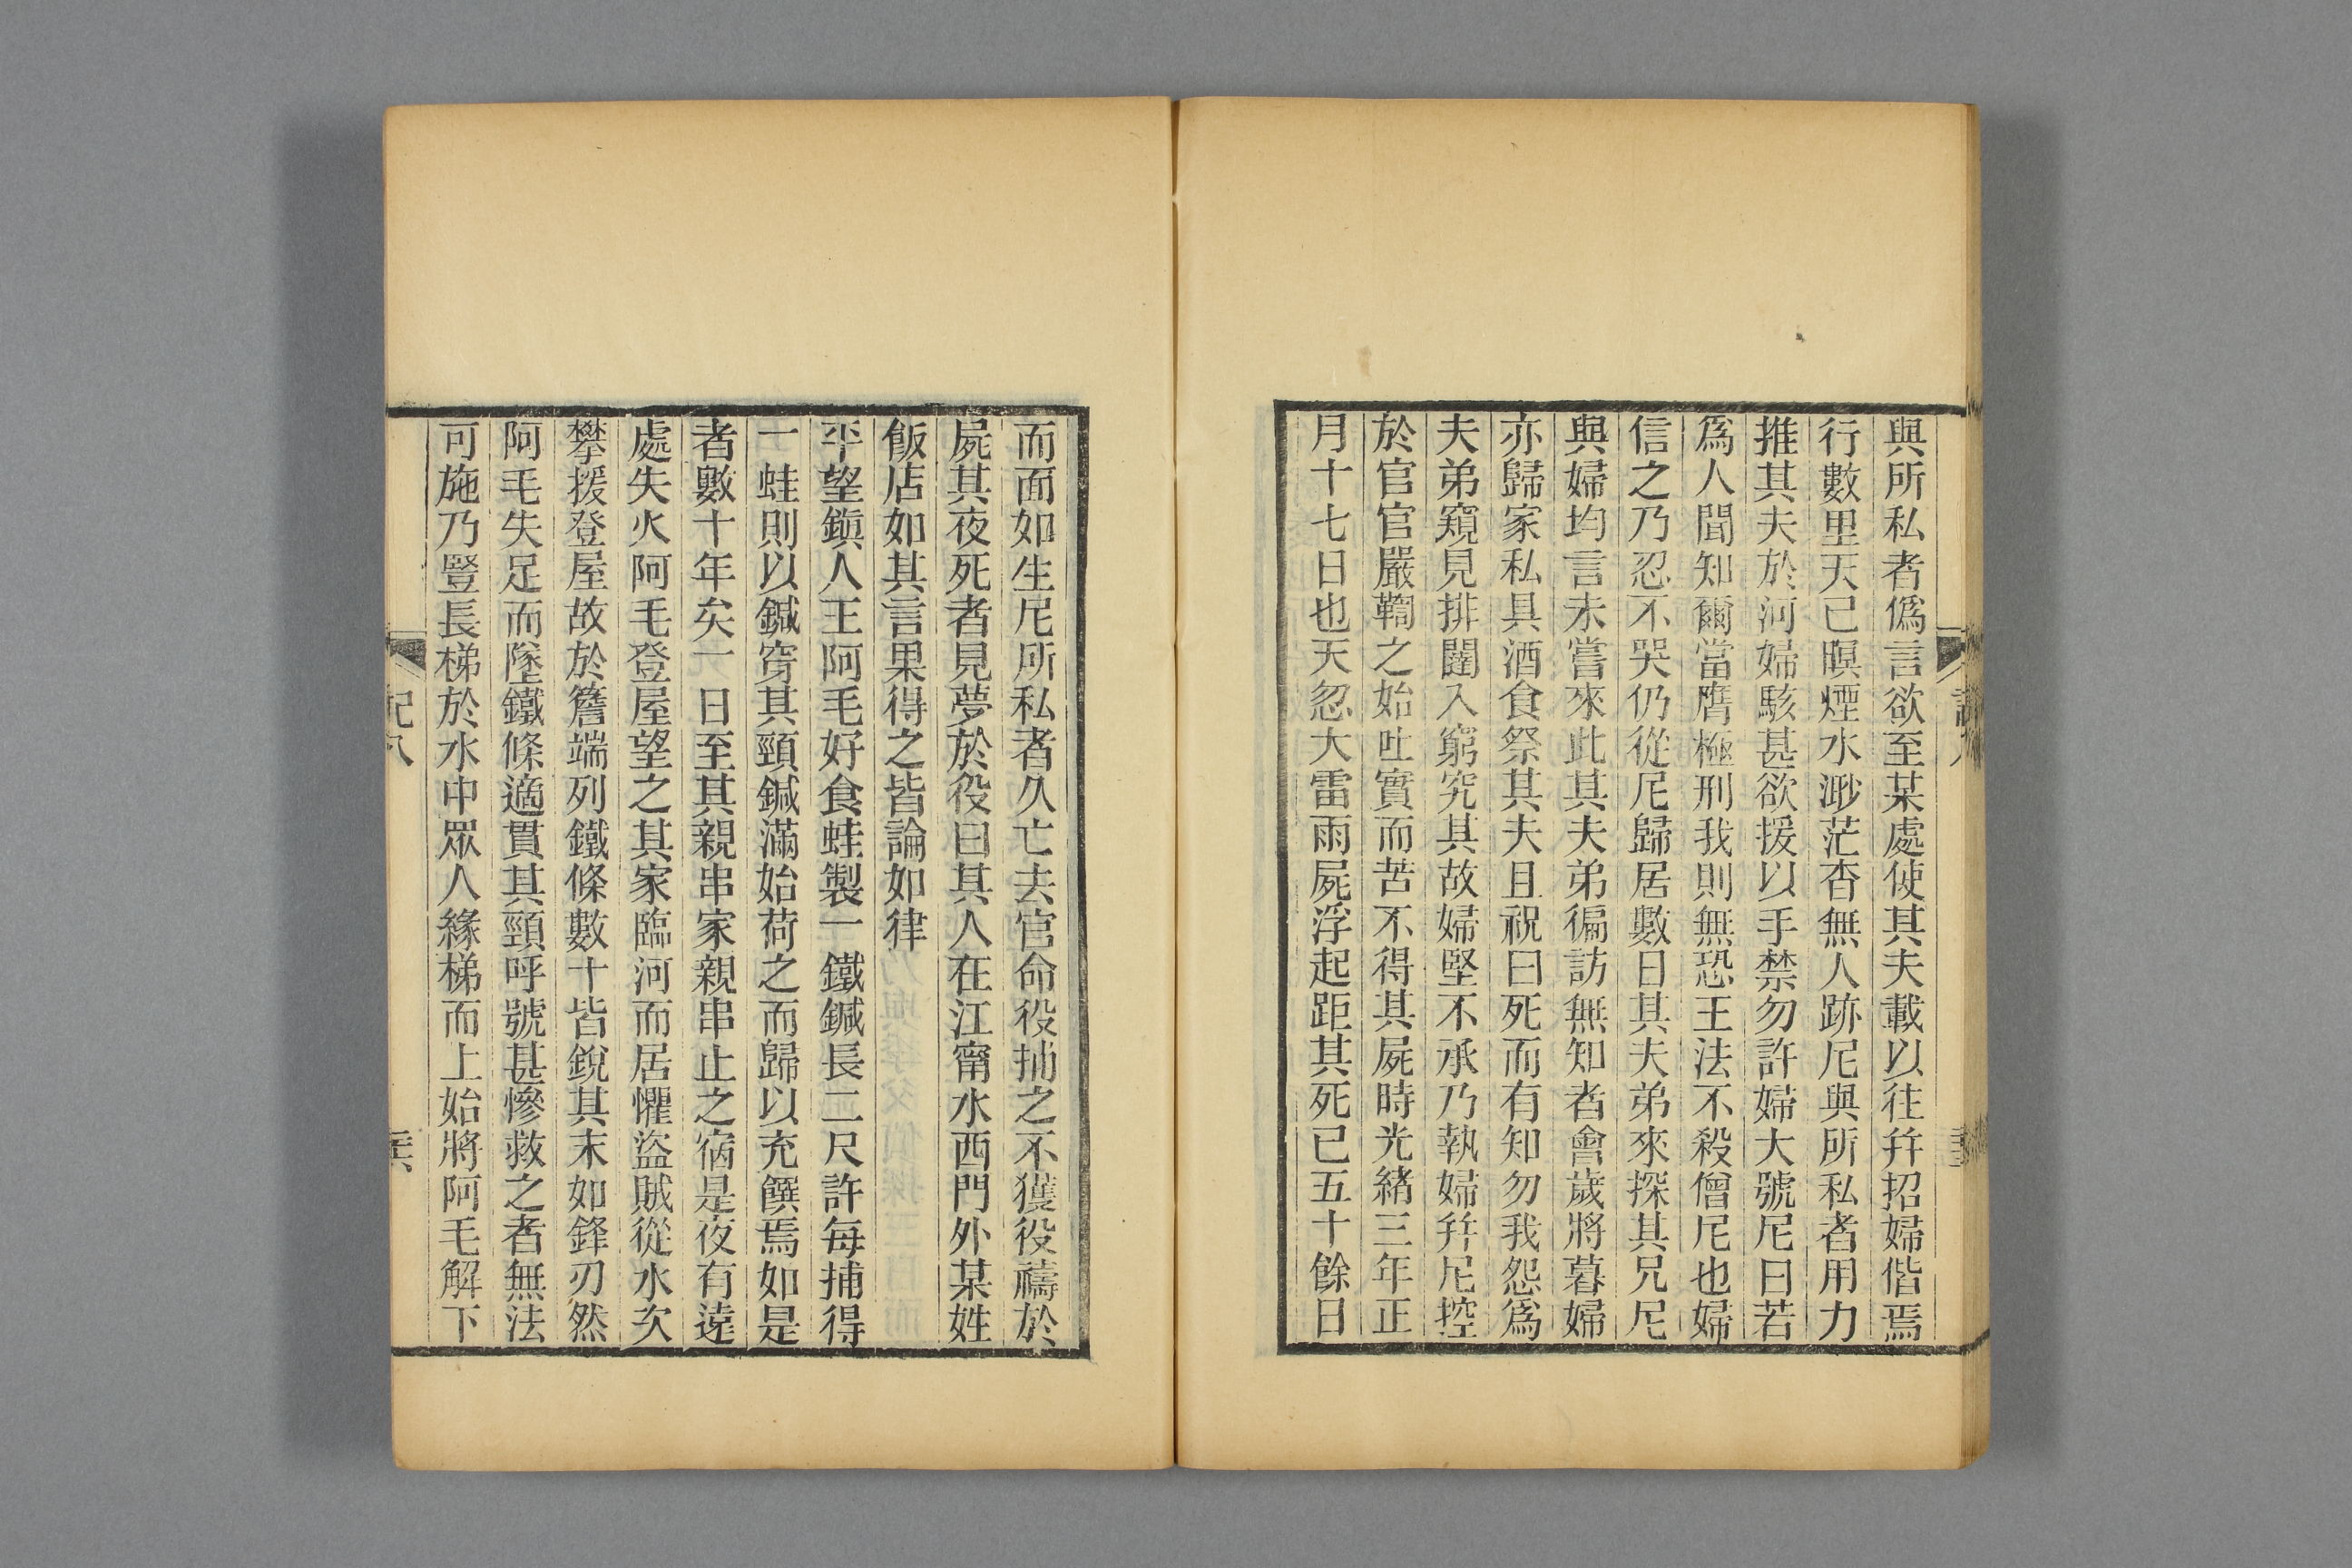 與所私者僞言欲至某處使其夫載以往幷招婦偕焉
行數里天已暝煙水渺茫杳無人跡尼與所私者用力
推其夫於河婦駭甚欲援以手禁勿許婦大號尼曰若
爲人聞知爾當膺極刑我則無恐王法不殺僧尼也婦
信之乃忍不哭仍從尼歸居數日其夫弟來探其兄尼
與婦均言未嘗來此其夫弟徧訪無知者會歲將暮婦
亦歸家私具酒食祭其夫且祝曰死而有知勿我怨爲
夫弟窺見排闥入窮究其故婦堅不承乃執婦幷尼控
於官官嚴鞫之始吐實而苦不得其屍時光緒三年正
月十七日也天忽大雷雨屍浮起距其死已五十餘日
而面如生尼所私者久亡去官命役捕之不獲役禱於
屍其夜死者見夢於役曰其人在江甯水西門外某姓
飯店如其言果得之皆論如律
平望鎭人王阿毛好食蛙製一鐵鍼長二尺許每捕得
一蛙則以鍼穿其頸鍼滿始荷之而歸以充饌焉如是
者數十年矣一日至其親串家親串止之宿是夜有遠
處失火阿毛登屋望之其家臨河而居懼盜賊從水次
攀援登屋故於簷端列鐵條數十皆銳其末如鋒刃然
阿毛失足而墜鐵條適貫其頸呼號甚慘救之者無法
可施乃豎長梯於水中眾人緣梯而上始將阿毛解下
記八